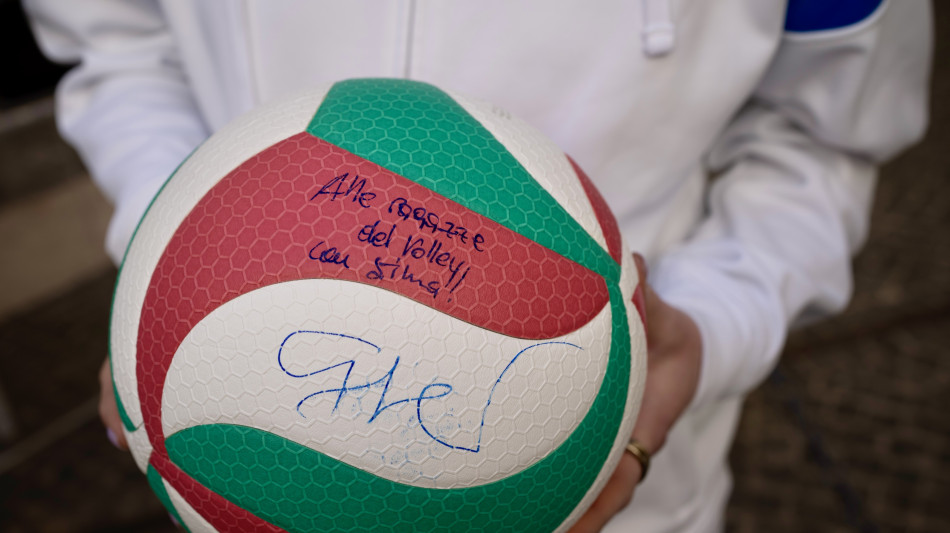 Alle ragazze
del Volley!
con stima!!